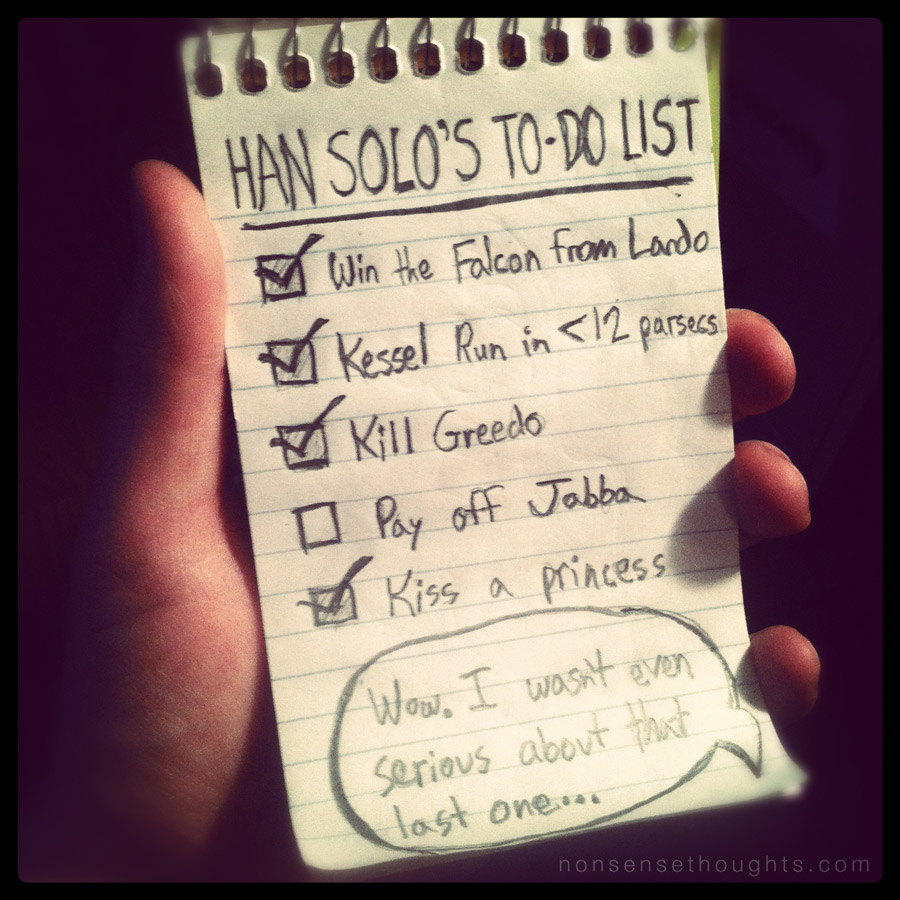 HAN SOLO'S TO-DO LIST
Win the Falcon from Lando
Kessel Run in <12 parsecs
Kill Greedo
Pay off Jabba
Kiss a princess
Wow. I wasn't even
serious about that
last one...
nonsensethoughts.com